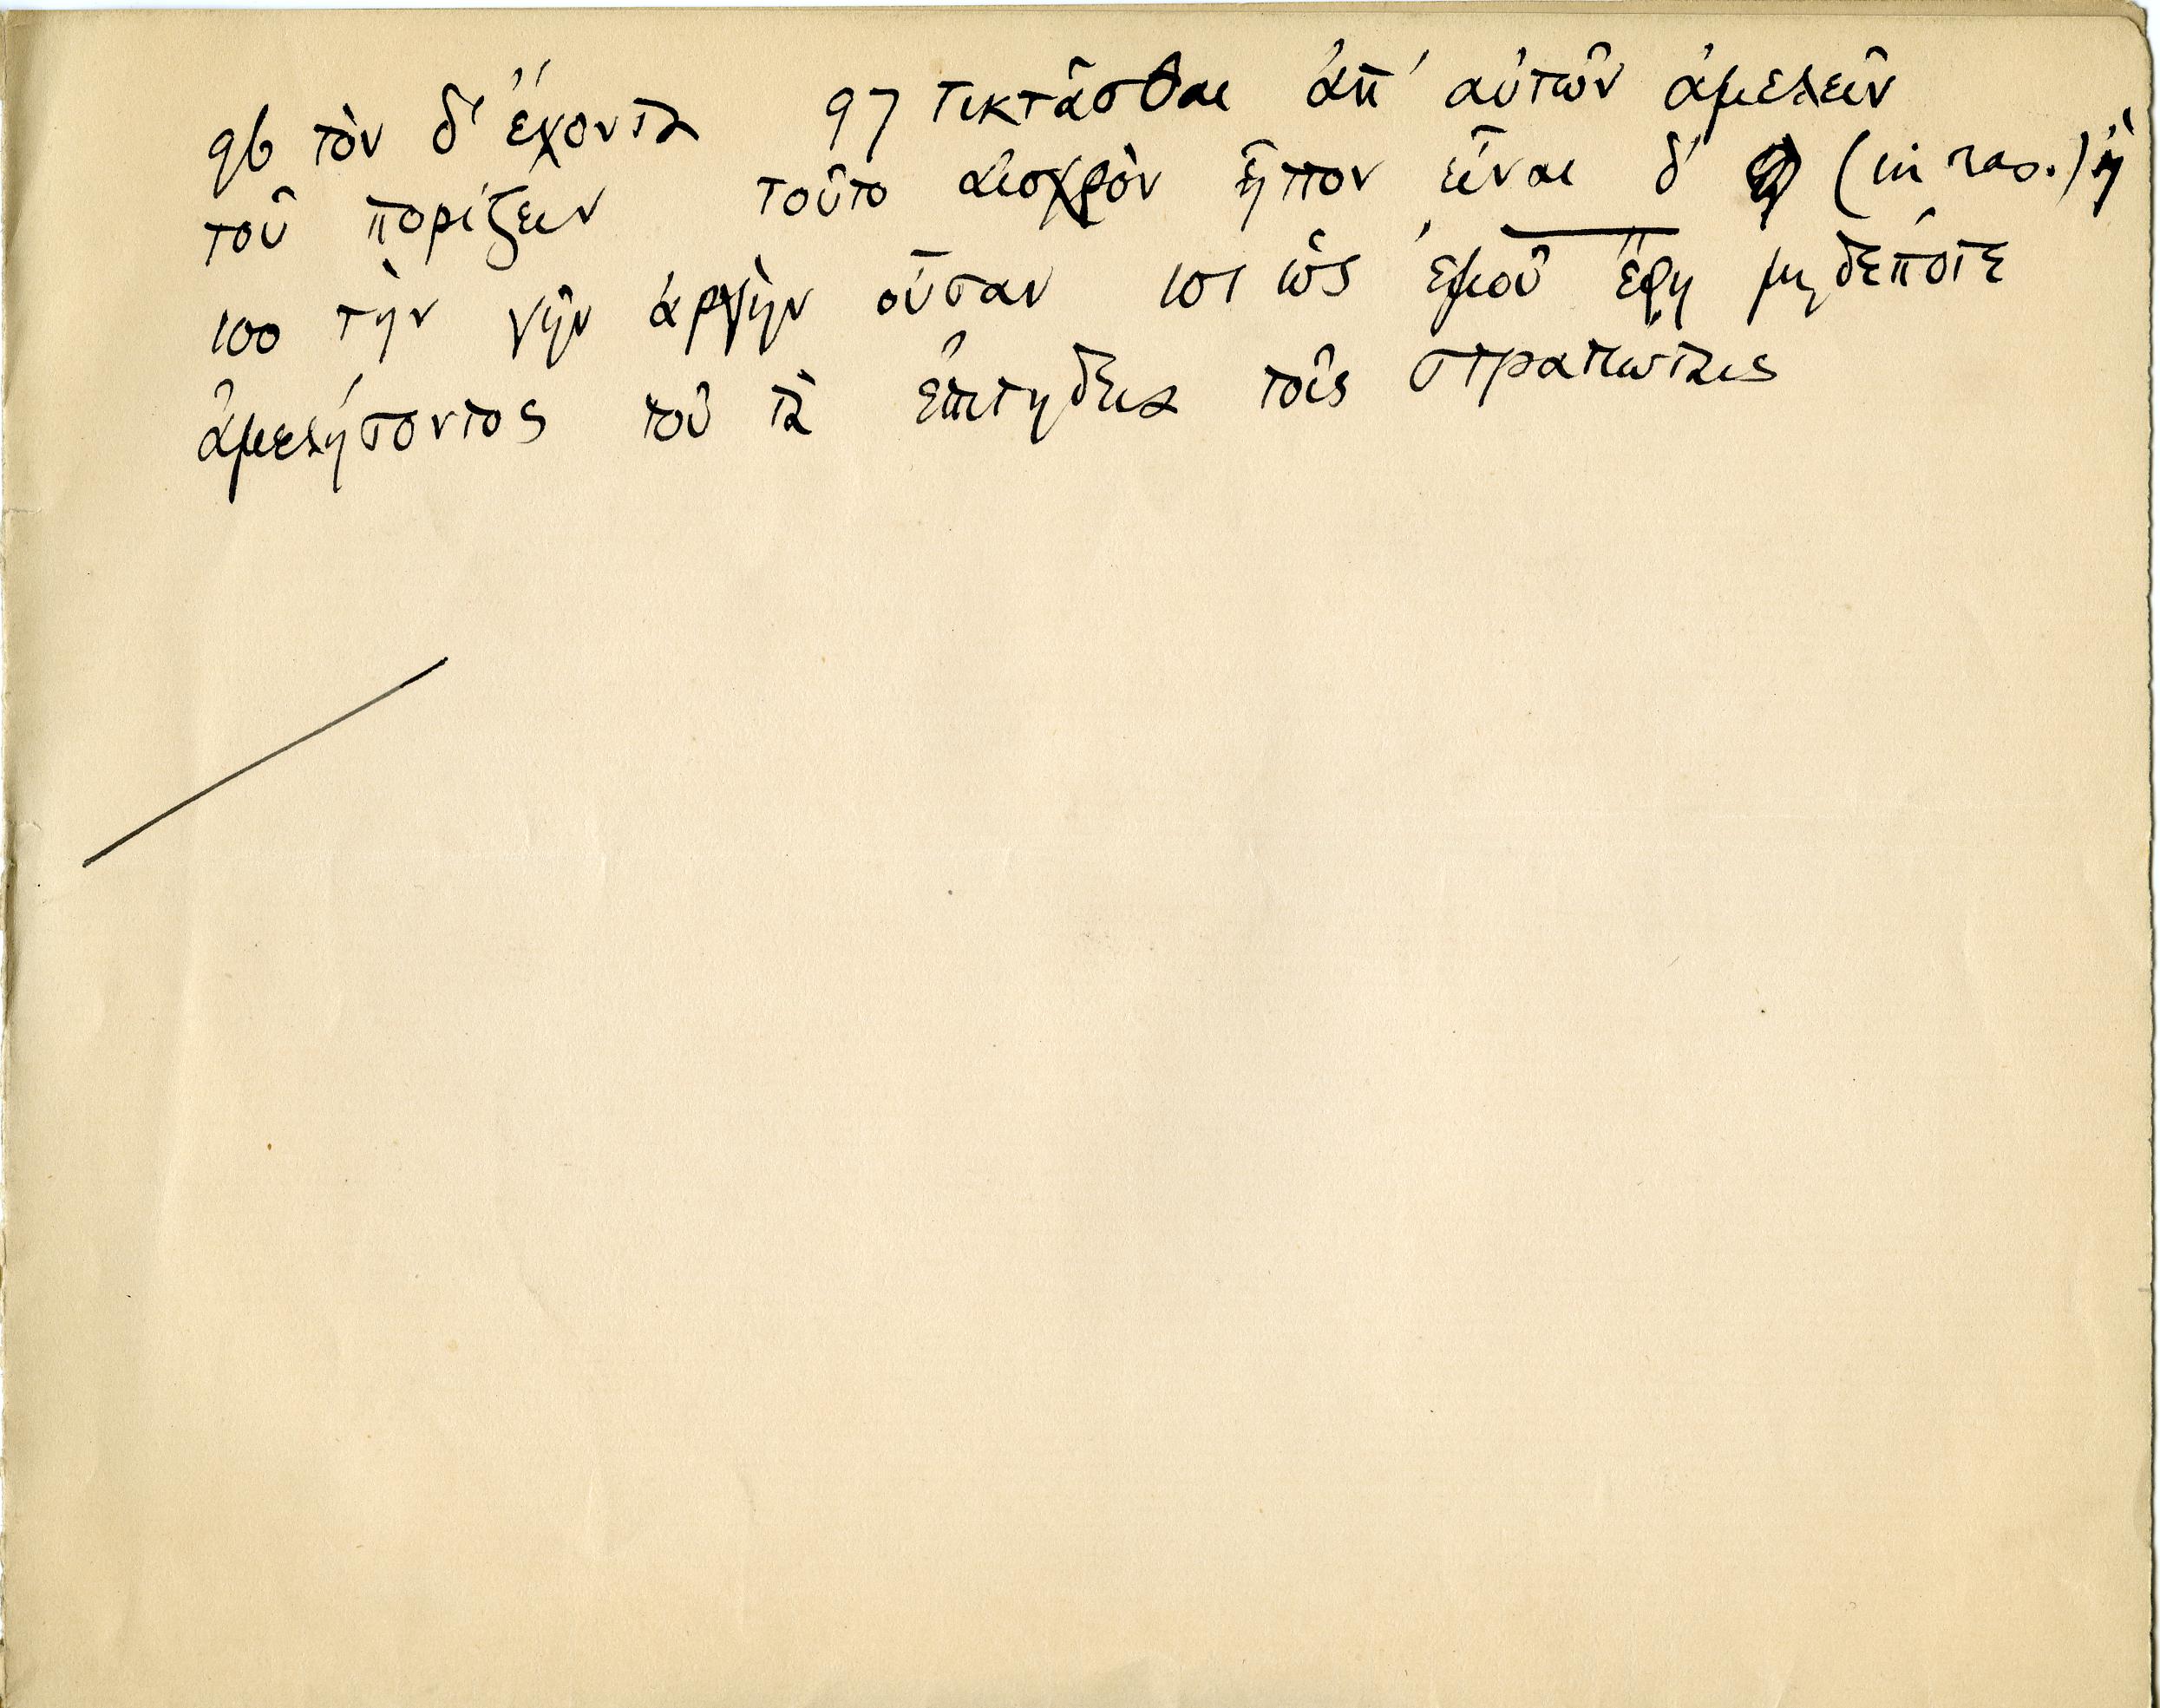 96 τὸν δ' ἔχοντα 97 τικτᾶσθαι ἀπ' αὐτῶν ἀμελεῖν
τοῦ πορίζειν τοῦτο αἰσχρὸν ἧττον εἶναι δ' (in ras.) ἢ
100 τὴν γῆν ἀργὴν οὖσαν 101 ὡς ἐμοῦ ἔφη μηδέποτε
ἀμελήσοντος τοῦ τὰ ἐπιτήδεια τοῖς στρατιώταις